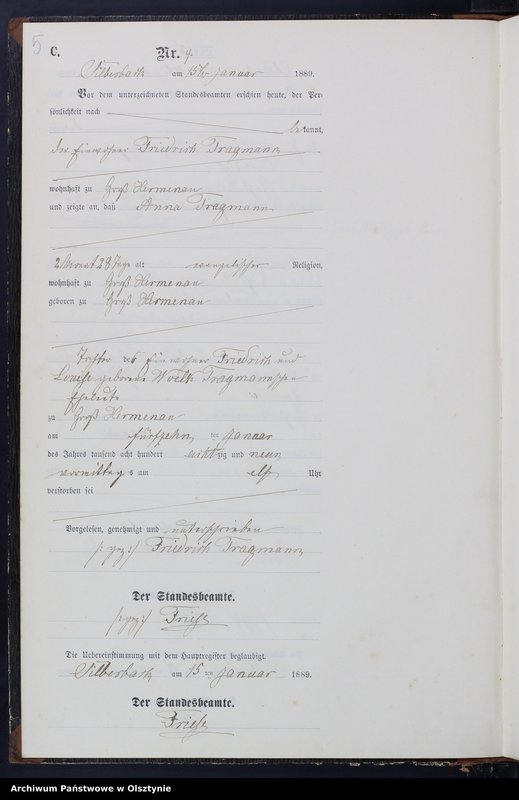 5
C.
Nr. 4.
Silberbach am 15ten Januar 1889.
Vor dem unterzeichneten Standesbeamten erschien heute, der Per-
sönlichkeit nach
bekannt,
der Einwohner Friedrich Tragmann
wohnhaft zu Groß Hermenau
und zeigte an, daß Anna Tragmann
2 Monat 28 Tage alt evangelischer Religion,
wohnhaft zu Groß Hermenau
geboren zu Groß Hermenau
Tochter des Einwohner Friedrich und
Louise geborene Woelk Tragmannschen
Eheleute
zu Groß Hermenau
am fünfzehn ten Januar
des Jahres tausend acht hundert achtzig und neun
vormittags um elf Uhr
verstorben sei
Vorgelesen, genehmigt und unterschrieben
/: gez :/ Friedrich Tragmann
Der Standesbeamte.
/: gez :/ Friese
Die Uebereinstimmung mit dem Hauptregister beglaubigt.
Silberbach am 15 ten Januar 1889.
Der Standesbeamte.
Friese
Archiwum Państwowe w Olsztynie